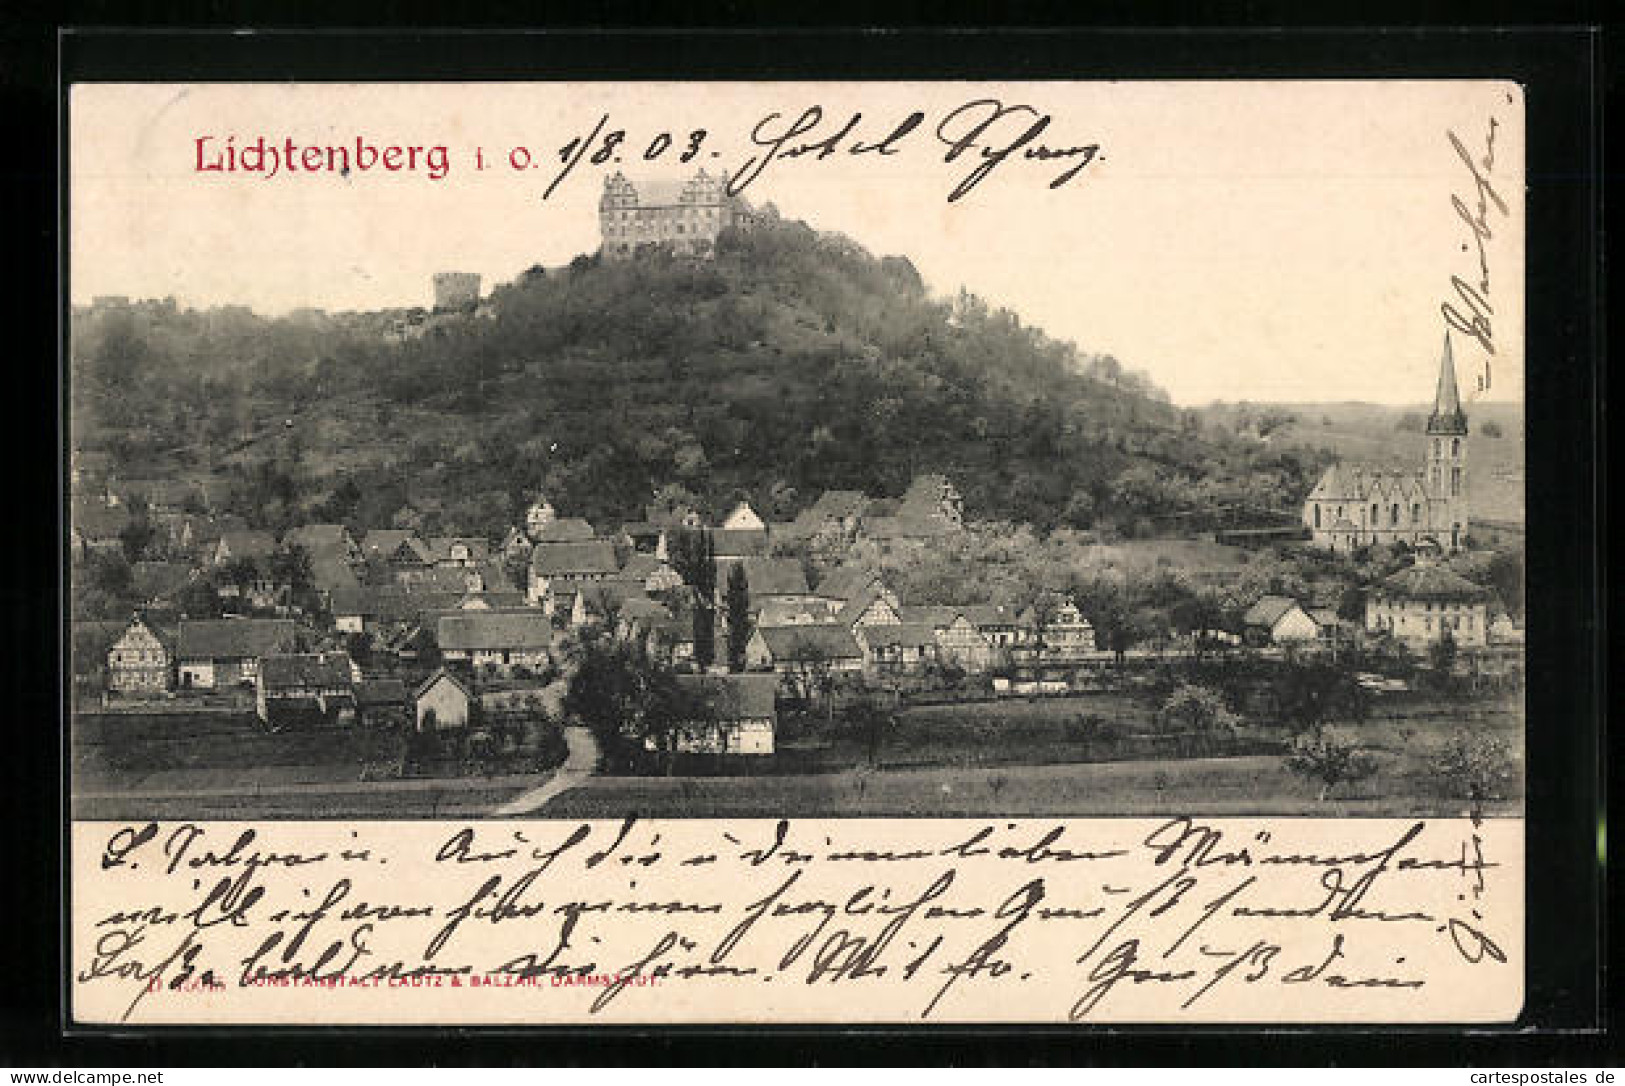 Lichtenberg i. O.
1/8. 03. Hotel Schanz.
L. Auch dir u deinem lieben Männchen
will ich von hier einen herzlichen Gruß senden.
Laß bald von dir hören. Mit frd. Gruß Dein
KUNSTANSTALT LAUTZ & BALZAR, DARMSTADT.
delcampe.net
the-mercurius
cartespostales de